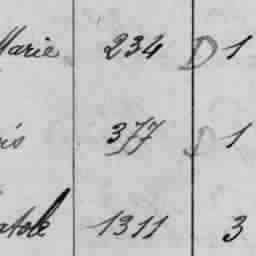 Marie 234 D 1
is 377 1
atole 1311 3